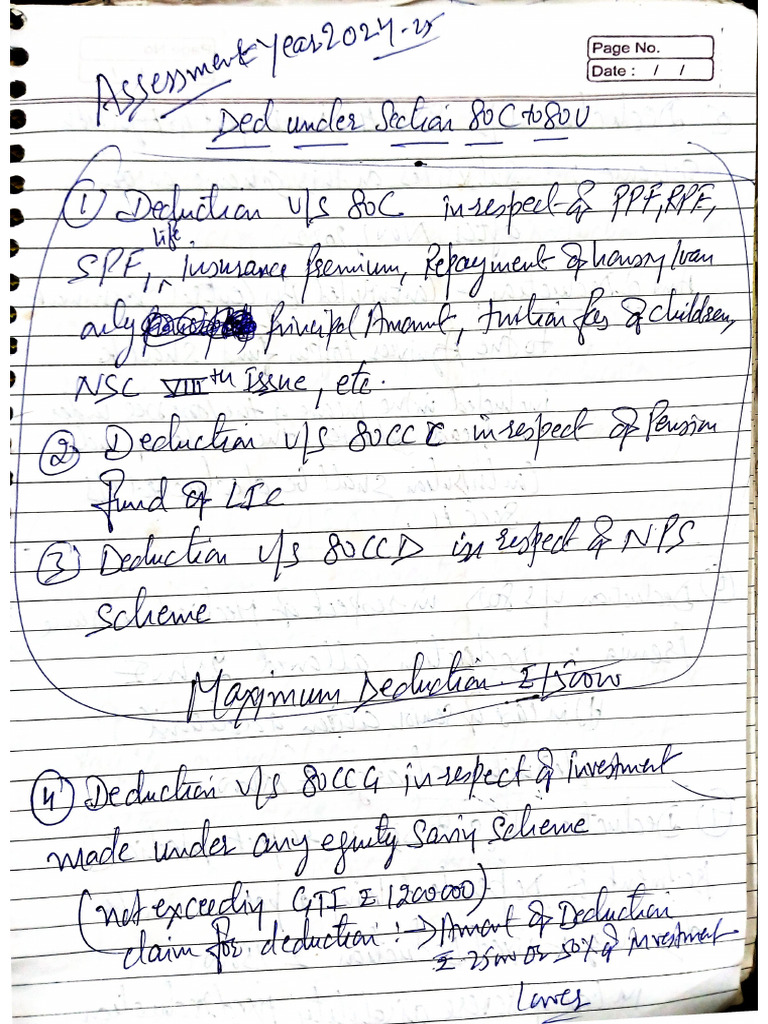 Page No.
Date : / /
Assessment Year 2024-25
Ded under Section 80C to 80U
① Deduction u/s 80C in respect of PPF, RPF,
SPF, life Insurance Premium, Repayment of housing loan
only Principal Amount, tuition fees of children,
NSC VIIIth Issue, etc.
② Deduction u/s 80CCC in respect of Pension
fund of LIC
③ Deduction u/s 80CCD in respect of NPS
scheme
Maximum Deduction ₹ 150000
④ Deduction u/s 80CCG in respect of investment
made under any equity saving scheme
(not exceeding GTI ₹ 1200000)
claim for deduction :→ Amount of Deduction
₹ 25000 or 50% of investment
Lower